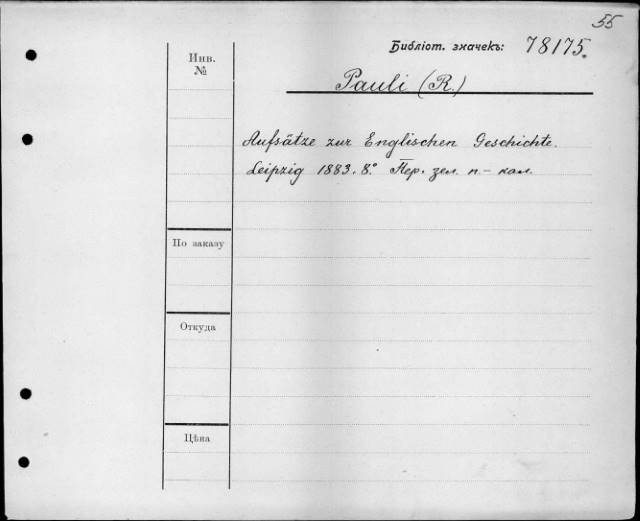 55
Библіот. значекъ: 78175.
Инв.
№
Pauli (R.)
Aufsätze zur Englischen Geschichte.
Leipzig 1883. 8.° Пер. зел. п.- кол.
По заказу
Откуда
Цѣна